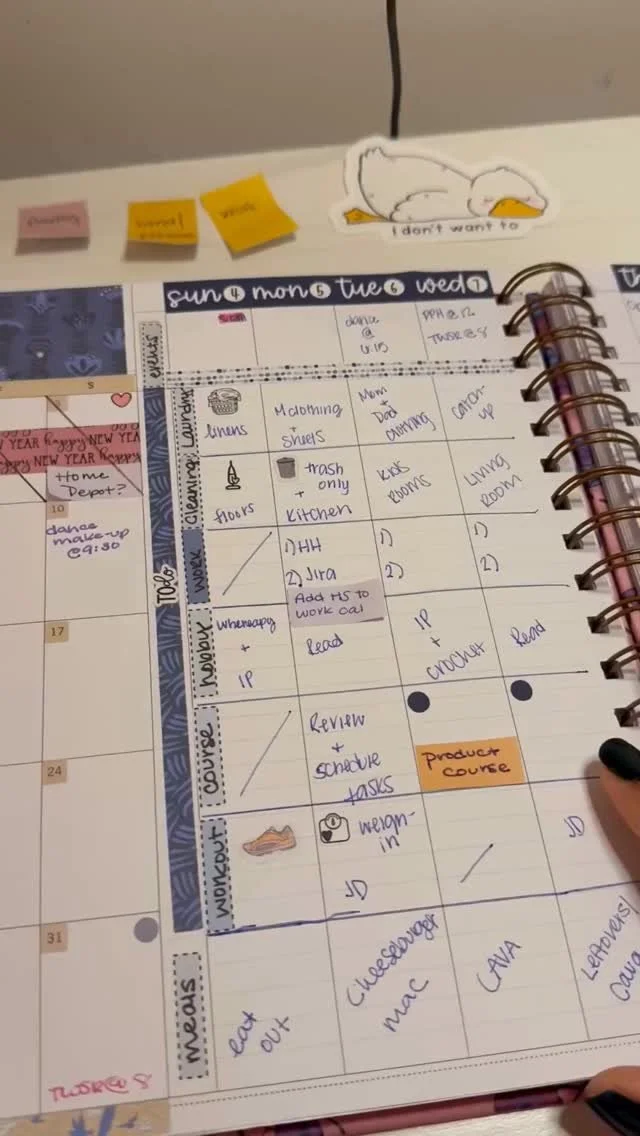 I don't want to
sun 4 mon 5 tue 6 wed 7
th
events
dance
@
DPH @ 12
TWSR @ 8
TO do
Laundry
linens
M clothing
+
sheets
Mom
+
Dad
clothing
catch-
up
cleaning
floors
trash
only
+
kitchen
kids
rooms
Living
room
work
1) HH
2) Jira
Add MS to
work cal
1)
2)
1)
2)
hobby
+
IP
Read
IP
+
crochet
Read
course
Review
+
schedule
tasks
product
course
workout
weigh-
in
JD
JD
meals
eat
out
Cheeseburger
mac
CAVA
Leftovers/
Cava
S
YEAR happy NEW YEA
happy NEW YEAR happy
Home
Depot?
10
dance
make-up
@ 9:30
17
24
31
TWSR @ 8